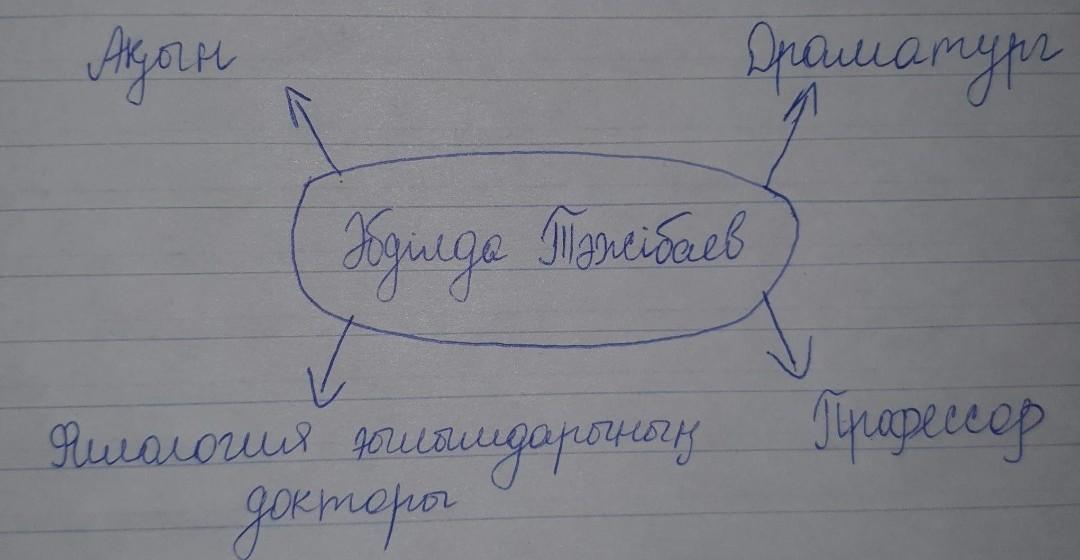 Ақын
Драматург
Әбділда Тәжібаев
Филология ғылымдарының
докторы
Профессор